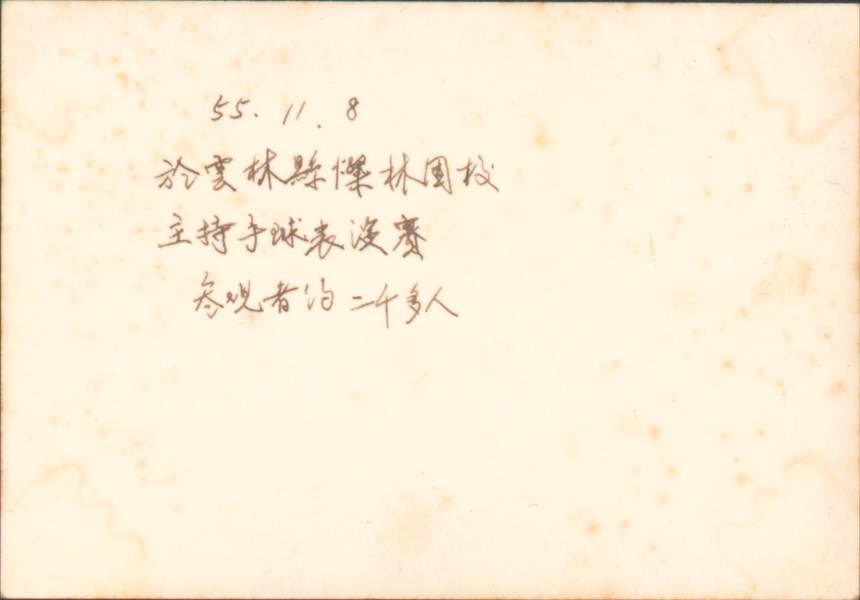 55. 11. 8
於雲林縣林国校
主持手球表演賽
参观者约二千多人